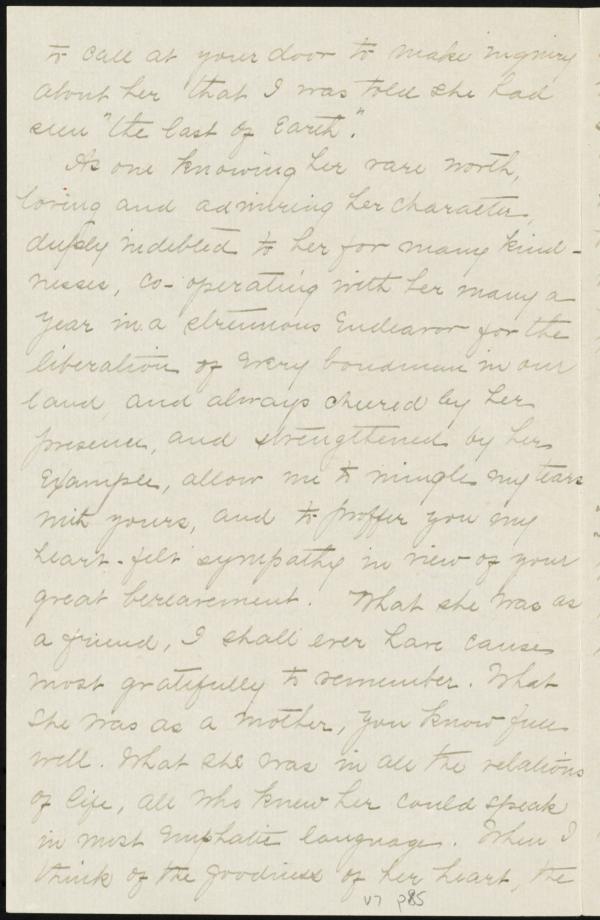 to call at your door to make inquiry
about her that I was told she had
seen "the last of Earth".
As one knowing her rare worth,
loving and admiring her character,
deeply indebted to her for many kind-
nesses, co-operating with her many a
year in a strenuous Endeavor for the
liberation of Every bondman in our
land, and always cheered by her
presence, and strengthened by her
Example, allow me to mingle my tears
with yours, and to proffer you my
heart-felt sympathy in view of your
great bereavement. What she was as
a friend, I shall ever have cause
most gratefully to remember. What
she was as a mother, you know full
well. What she was in all the relations
of life, all who knew her could speak
in most Emphatic language. When I
think of the goodness of her heart, the
v7 p85